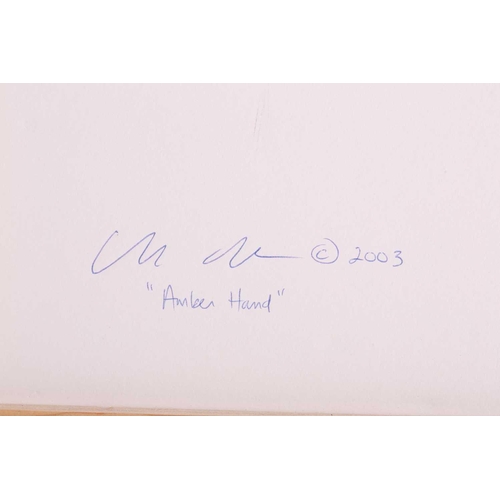 © 2003
"Amber Hand"